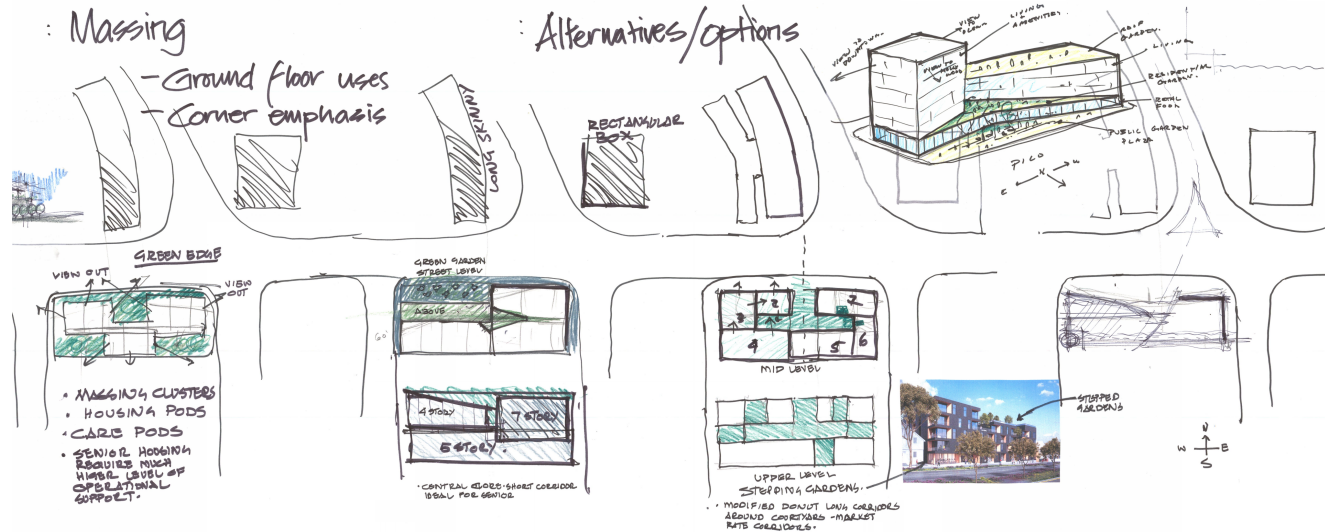 : Massing
- Ground floor uses
- Corner emphasis
: Alternatives/options
LONG SKINNY
RECTANGULAR
BOX
VIEW TO
DOWNTOWN.
VIEW
TO
OCEAN
LIVING +
AMENITIES
ROOF
GARDEN.
LIVING
RESIDENTIAL
GARDEN.
RETAIL
FOOD
PUBLIC GARDEN
PLAZA
PICO
GREEN EDGE
VIEW OUT
VIEW
OUT
• MASSING CLUSTERS
• HOUSING PODS
• CARE PODS
• SENIOR HOUSING
REQUIRE MUCH
HIGER LEVEL OF
OPERATIONAL
SUPPORT.
GREEN GARDEN
STREET LEVEL
ABOVE
60'
4 STORY
7 STORY
5 STORY.
• CENTRAL CORE-SHORT CORRIDOR
IDEAL FOR SENIOR
3
2
2
4
5
6
MID LEVEL
UPPER LEVEL
STEPPING GARDENS.
• MODIFIED DONUT LONG CORRIDORS
AROUND COURTYARDS - MARKET
RATE CORRIDORS.
STEPPED
GARDENS
N
W
E
S